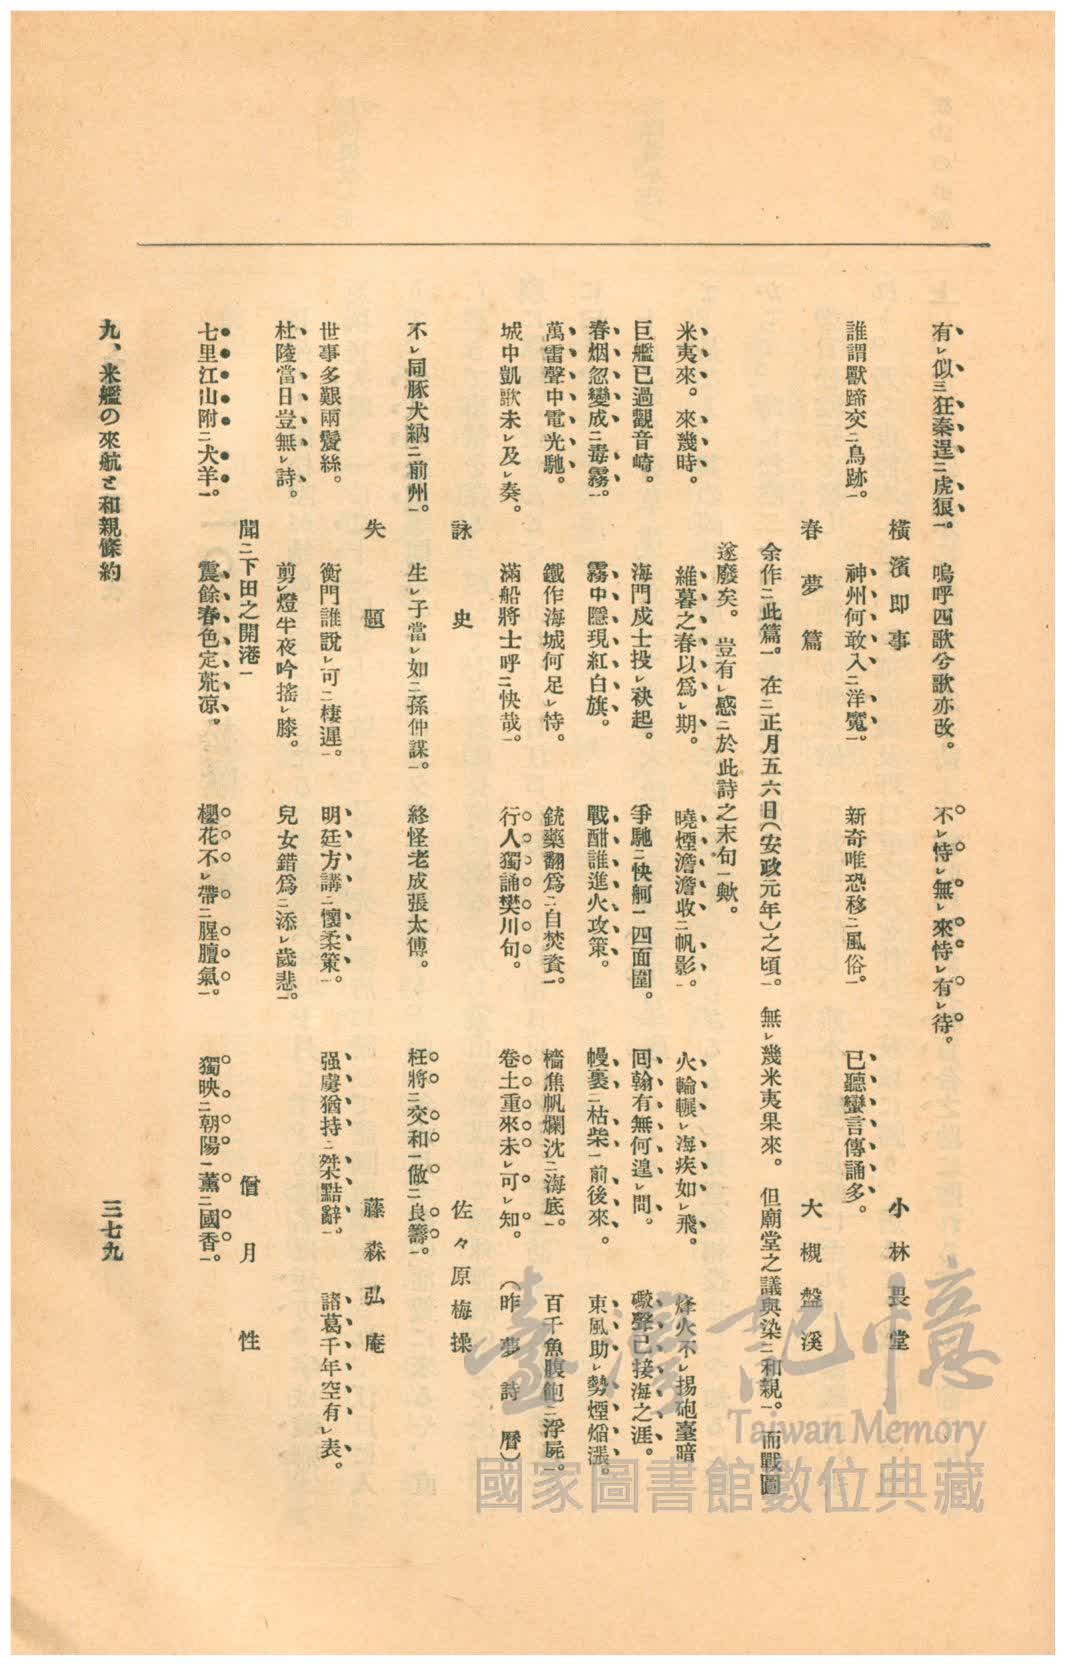 有㆑似㆔狂秦逞㆓虎狼㆒。嗚呼四歌兮歌亦改。不㆑恃㆑無㆑來恃㆑有㆑待。
橫濱卽事　小林畏堂
誰謂獸蹄交㆓鳥跡㆒。神州何敢入㆓洋寬㆒。新奇唯恐移㆓風俗㆒。已聽蠻言傳誦多。
春夢篇　大槻盤溪
余作㆓此篇㆒。在㆓正月五六日（安政元年）之頃㆒。無㆑幾米夷果來。但廟堂之議與染㆓和親㆒。而戰圖
遂廢矣。豈有㆑感㆓於此詩之末句㆒歟。
米夷來。來幾時。維暮之春以爲㆑期。曉煙澹澹收㆓帆影㆒。火輪輾㆑海疾如㆑飛。烽火不㆑揚砲臺暗
巨艦已過觀音崎。海門戍士投㆑袂起。爭馳㆓快舸㆒四面圍。回翰有無何遑㆑問。礮聲已接海之涯。
春烟忽變成㆓毒霧㆒。霧中隱現紅白旗。戰酣誰進火攻策。幔裹㆓枯柴㆒前後來。東風助㆑勢煙焰漲。
萬雷聲中電光馳。鐵作海城何足㆑恃。銃藥翻爲㆓自焚資㆒。檣焦帆爛沈㆓海底㆒。百千魚腹飽㆓浮屍㆒。
城中凱歌未㆑及㆑奏。滿船將士呼㆓快哉㆒。行人獨誦樊川句。卷土重來未㆑可㆑知。（昨夢詩曆）
詠史　佐々原梅操
不㆑同豚犬納㆓荊州㆒。生㆑子當㆑如㆓孫仲謀㆒。終怪老成張太傅。枉將㆓交和㆒倣㆓良籌㆒。
失題　藤森弘庵
世事多艱兩鬢絲。衡門誰說㆑可㆓棲遲㆒。明廷方講㆓懷柔策㆒。强虜猶持㆓桀黠辭㆒。諸葛千年空有㆑表。
杜陵當日豈無㆑詩。剪㆑燈半夜吟搖㆑膝。兒女錯爲㆓添㆑歲悲㆒。
聞㆓下田之開港㆒　僧月性
七里江山附㆓犬羊㆒。震餘春色定荒凉。櫻花不㆑帶㆓腥膻氣㆒。獨映㆓朝陽㆒薰㆓國香㆒。
九、米艦の來航と和親條約　三七九
臺灣記憶
Taiwan Memory
國家圖書館數位典藏